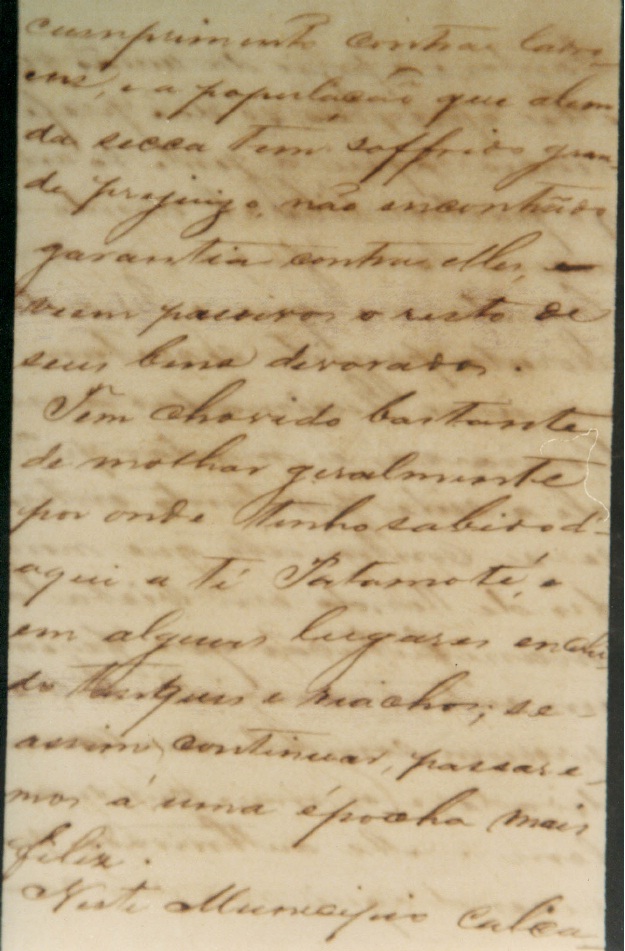 cumprimento contra ladro-
ens, e a população que alem
da secca tem soffrido gran-
de prejuizo, não encontrão
garantia contra elles, e
veem passivos o resto de
seus bens devorados.
Tem chovido bastante
de molhar geralmente
por onde tenho sabido d'-
aqui a té Patamoté, e
em alguns lugares enchi-
do tanques e riachos; se
assim continuar, passare-
mos á uma épocha mais
feliz.
Neste Municipio calca-